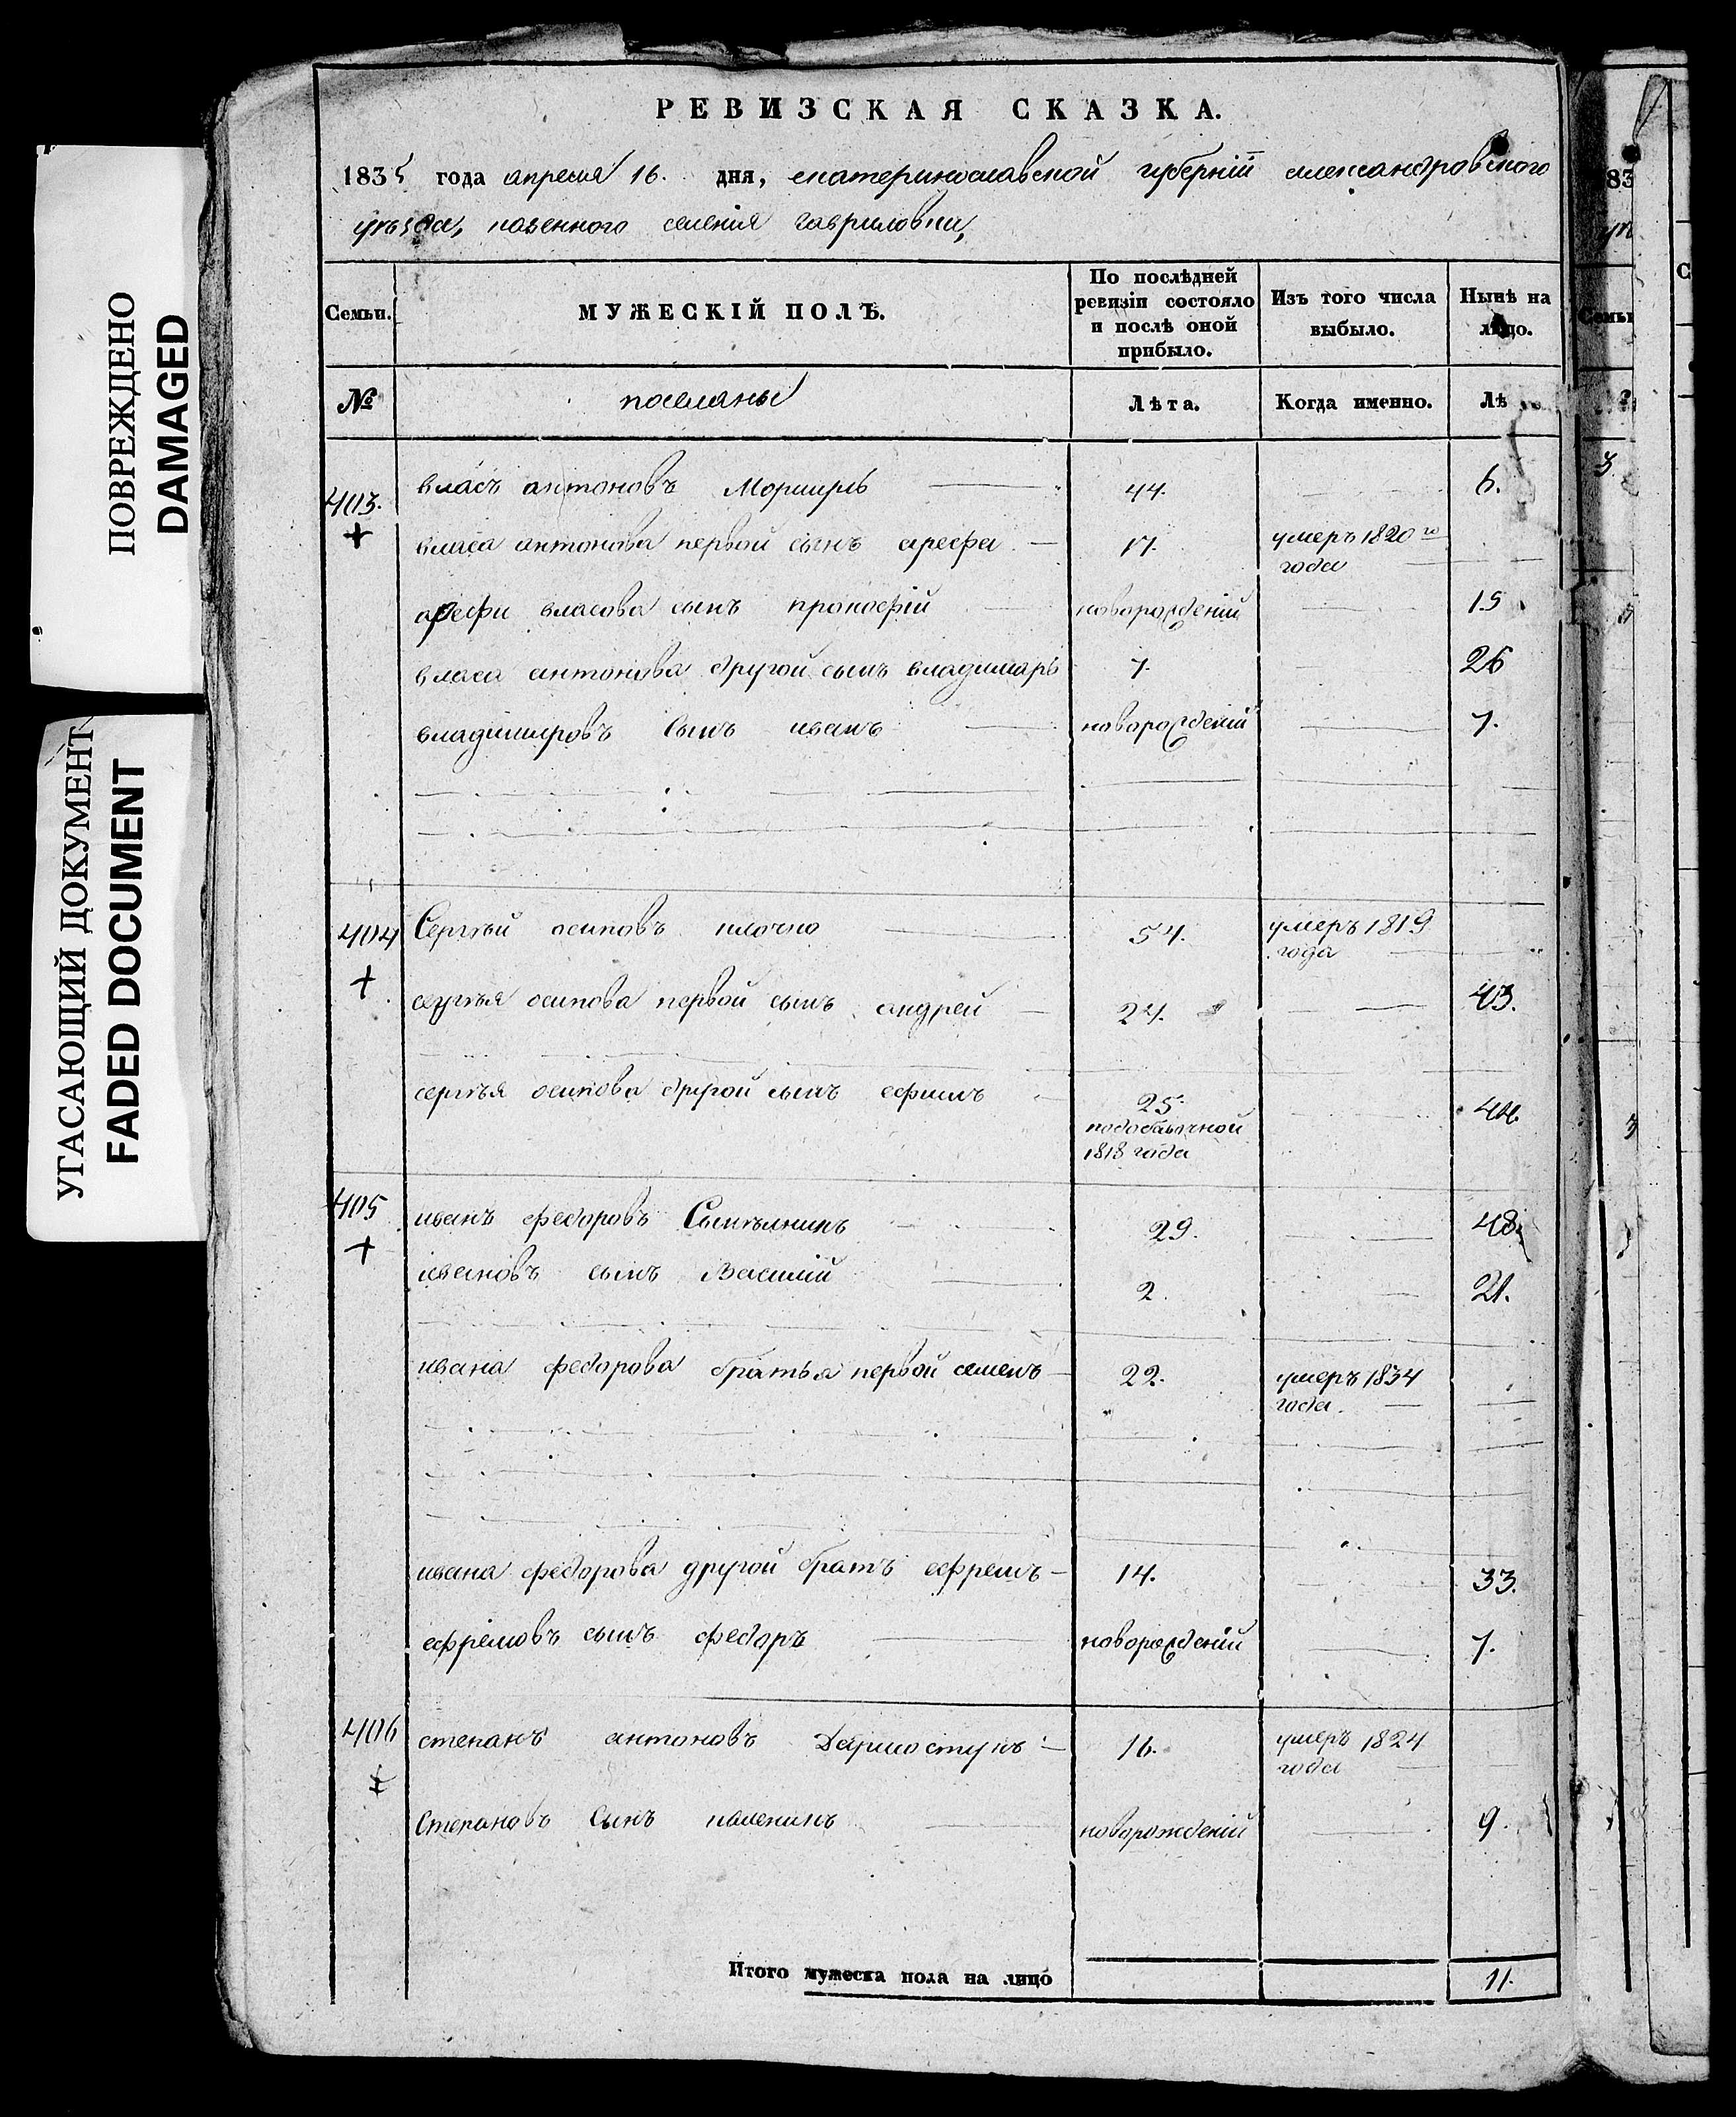 ПОВРЕЖДЕНО
DAMAGED
УГАСАЮЩИЙ ДОКУМЕНТ
FADED DOCUMENT
РЕВИЗСКАЯ СКАЗКА.
1835 года апреля 16. дня, екатеринославской губерніи александровского
уѣзда, казенного селенія гавриловки,
Семьи. МУЖЕСКІЙ ПОЛЪ. По послѣдней ревизіи состояло и послѣ оной прибыло. Изъ того числа выбыло. Нынѣ на лицо.
№ поселяны Лѣта. Когда именно. Лѣ
403. власъ антоновъ 44. 6.
власа антонова первой сынъ арефа 17. умеръ 1820го
года
арефи власова сынъ прокофій новорожденій 15
власа антонова другой сынъ владимиръ 7. 26
владимировъ сынъ иванъ новорожденій 7.
404 Сергѣй осиповъ 54. умеръ 1819
года
сергѣя осипова первой сынъ андрей 24. 43.
сергѣя осипова другой сынъ ефимъ 25. 44.
1818 года
405 иванъ федоровъ 29. 48.
ивановъ сынъ Василій 2. 21.
ивана федорова братья первой семенъ 22. умеръ 1834
года.
ивана федорова другой братъ ефремъ 14. 33.
ефремовъ сынъ федоръ новорожденій 7.
406 степанъ антоновъ 16. умеръ 1824
года
Степановъ Сынъ новорожденій 9.
Итого мужеска пола на лицо 11.